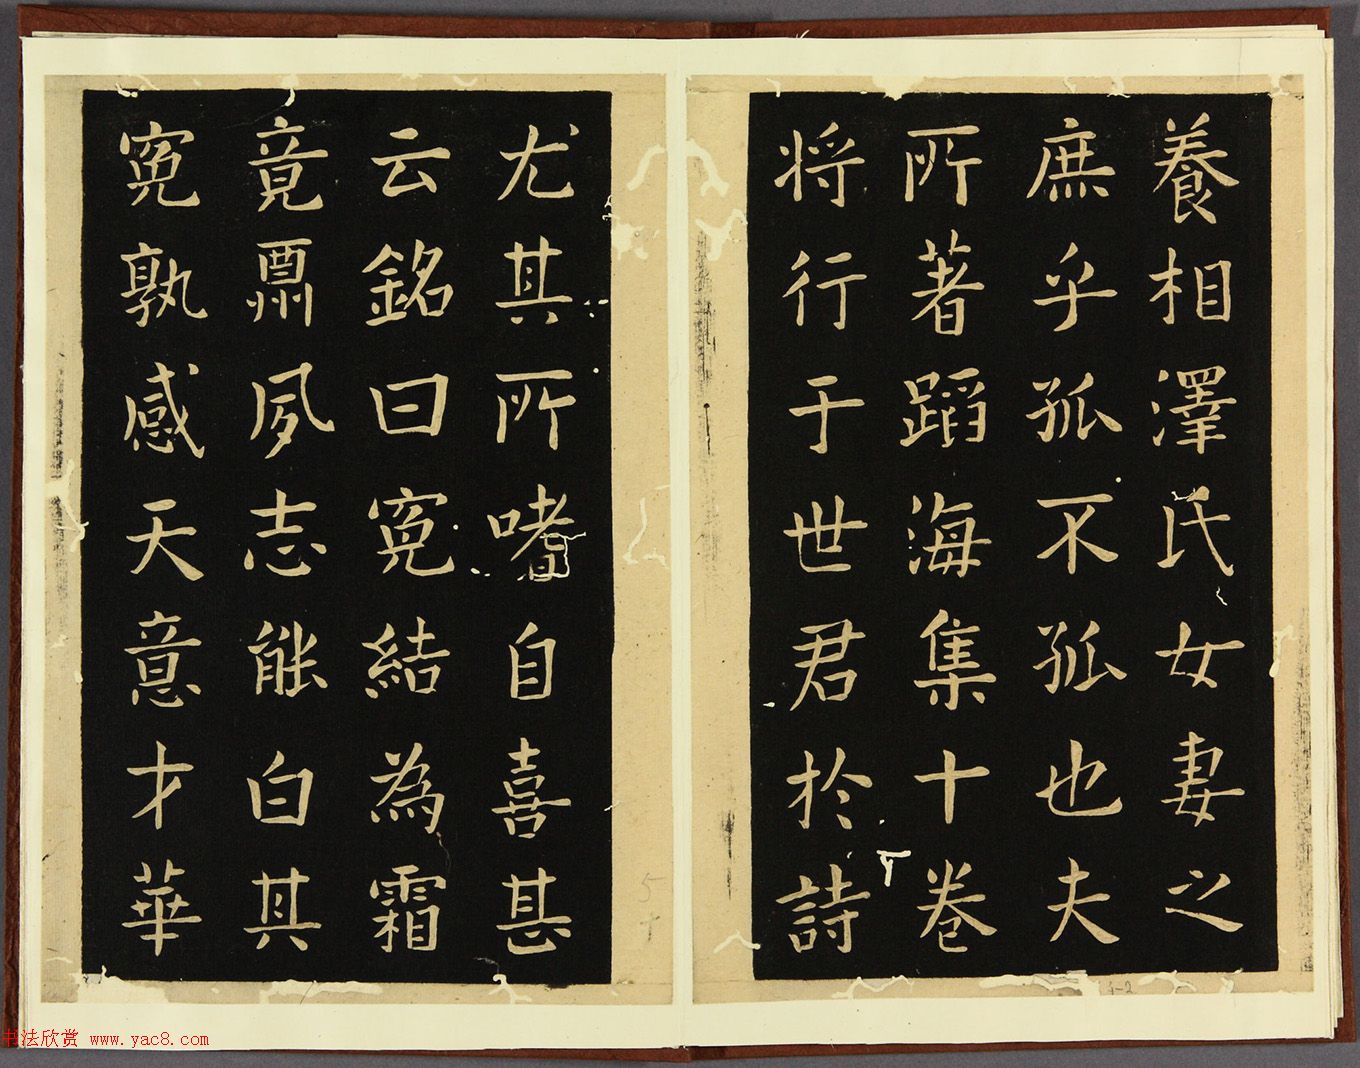 養相澤氏女妻之
庶乎孤不孤也夫
所著蹈海集十卷
将行于世君於詩
尤其所嗜自喜甚
云銘曰寃結為霜
竟酬夙志能白其
寃孰感天意才華
书法欣赏 www.yac8.com